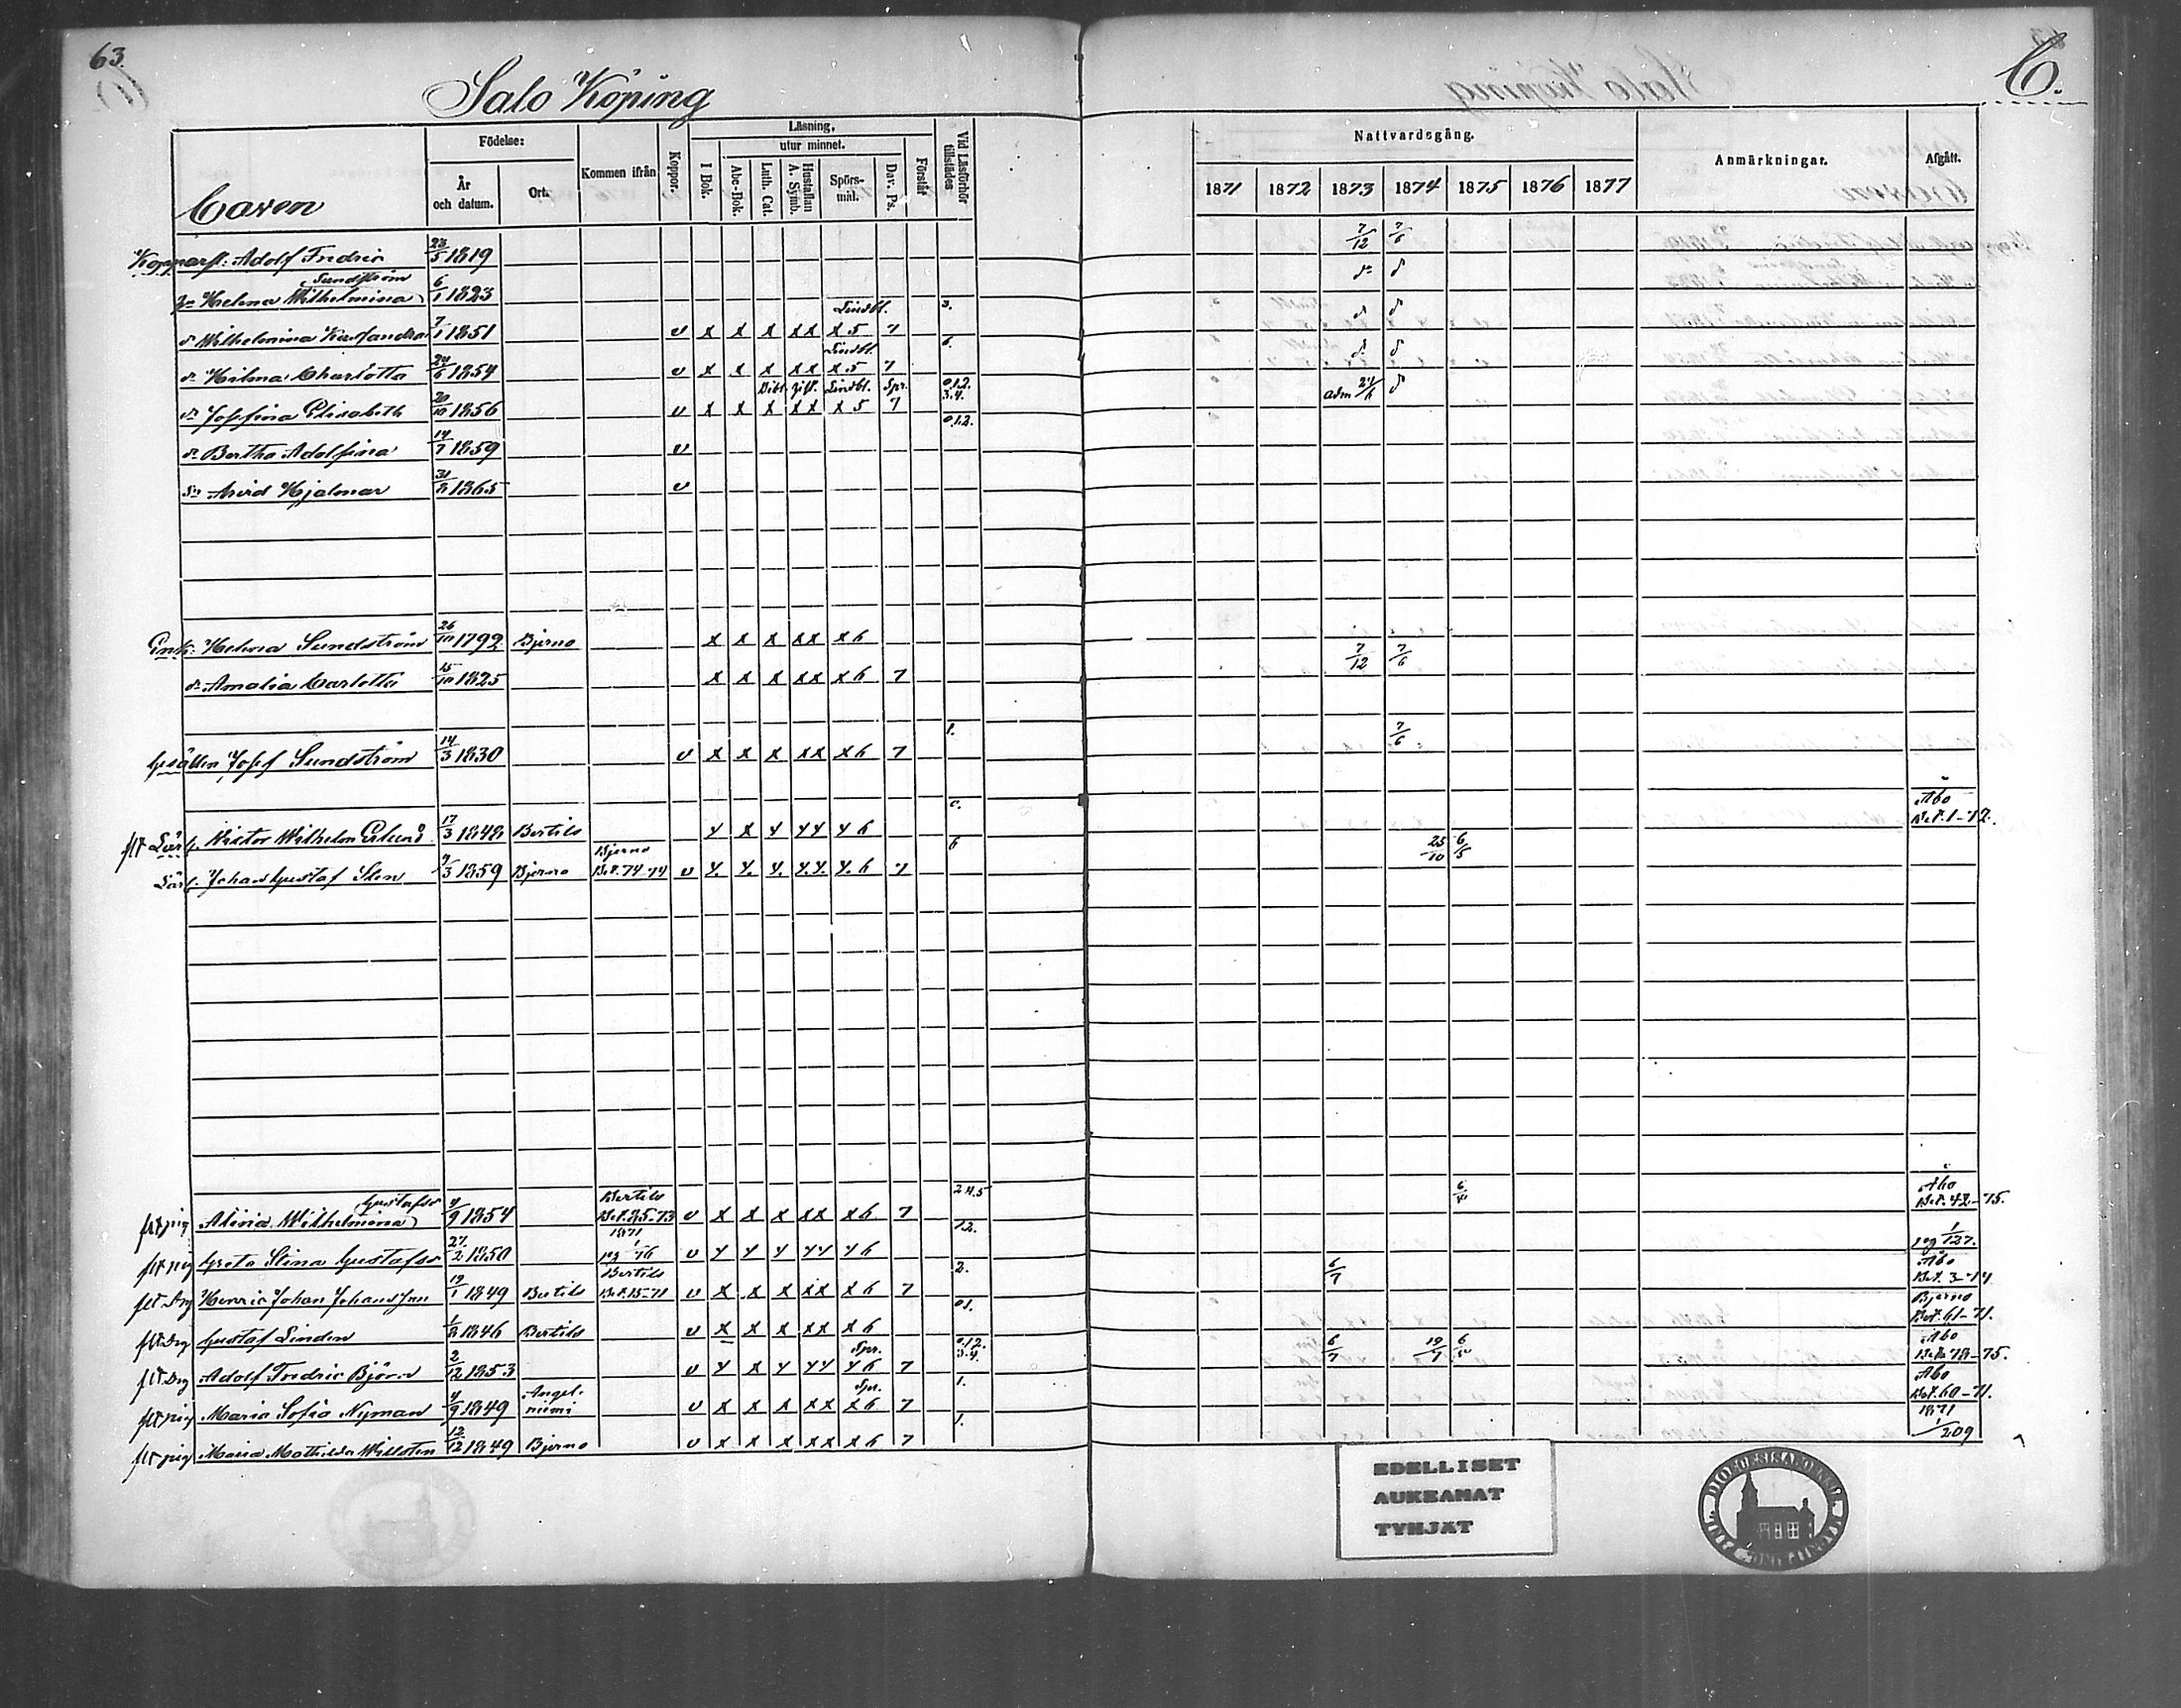 63.
Salo Köping
C.
Födelse:
År och datum.
Ort.
Kommen ifrån
Koppor.
Läsning,
I Bok.
utur minnet.
Abc-Bok.
Luth. Cat.
Hustaflan A. Symb.
Spörs-mål.
Dav. Ps.
Förstår
Vid Läsförhör tillstädes
Nattvardsgång.
1871 1872 1873 1874 1875 1876 1877
Anmärkningar.
Afgått.
Caxen
Kopparsl. Adolf Fredric 23/5 1819 7/12 7/6
Sundström
Helena Wilhelmina 6/1 1823
Lindbl. 3.
d. Wilhelmina 7/1 1851 v x x x xx x 5 7
Lindbl. 6.
dr Hilma Charlotta 24/6 1854 v x x x xx x 5 7
Lindbl. Spr. 012. 3.4.
dr Josefina Elisabeth 20/10 1856 v x x x xx x 5 7 adm
012.
dr Bertha Adolfina 14/7 1859 v
sn Arvid Hjalmar 31/8 1865 v
Enk. Helena Sundström 26/10 1792 Bjerno x x x xx x 6 7/12 7/6
dr Amalia Carlotta 15/10 1825 x x x xx x 6 7
1.
Gesällen Josef Sundström 14/3 1830 v x x x xx x 6 7 7/6
0. Åbo
Wictor Wilhelm 17/3 1848 Bertils x 6 Bet. 1-72.
Bjerno 6
Lärl. Johan Gustaf Sten 9/3 1859 Bjerno Bet. 74-74 v 6 7 25/10 6/5
Gustafsr Bertils 245 Åbo
flt pig Alina Wilhelmina 4/9 1854 Bet. 25-73 v x x x xx x 6 7 Bet. 42-75.
1871 12.
flt pig Greta Stina Gustafsr 27/2 1850 pag 76 v 6 pag 127.
Bertils 2. Åbo
flt Drg Henric Johan Johansson 19/1 1849 Bertils Bet. 15-71 v x x x xx x 6 7 6/7 Bet. 3-74
01. Bjerno
flt Drg Gustaf Linden 1/8 1846 Bertils v x x x xx x 6 Bet. 61-71.
Spr. 012. 3.4. Åbo
flt Drg Adolf Fredric Björn 2/12 1853 v 6 7 6/7 19/7 6/5 Bet. 78-75.
Angel-niemi Spr. 1. Åbo
flt pig Maria Sofia Nyman 4/9 1849 v x x x xx x 6 7 Bet. 60-71.
1. 1871
flt pig Maria Mathilda Willsten 12/12 1849 Bjerno v x x x xx x 6 7 1/209
EDELLISET
AUKEAMAT
TYHJÄT